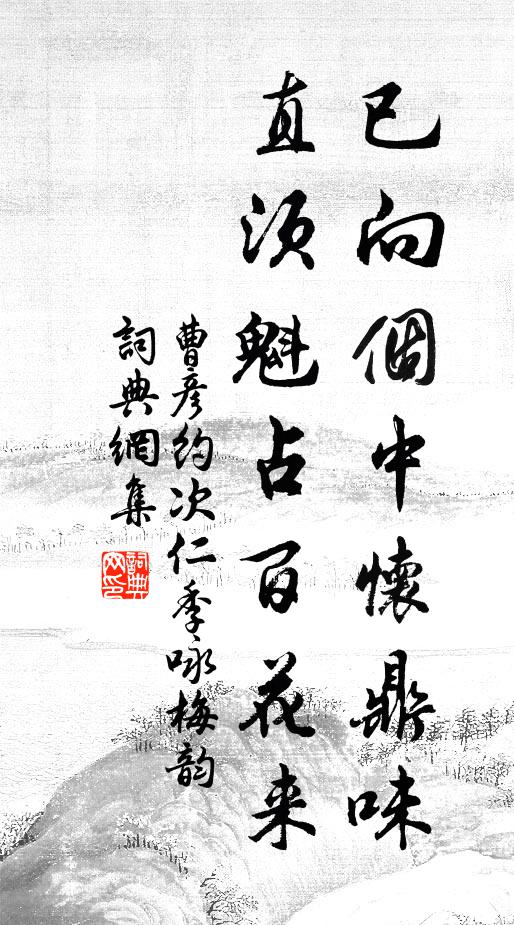 已向個中懷鼎味
直須魁占百花来
曹彦約次仁季咏梅韵
詞典網集
詞典
网印